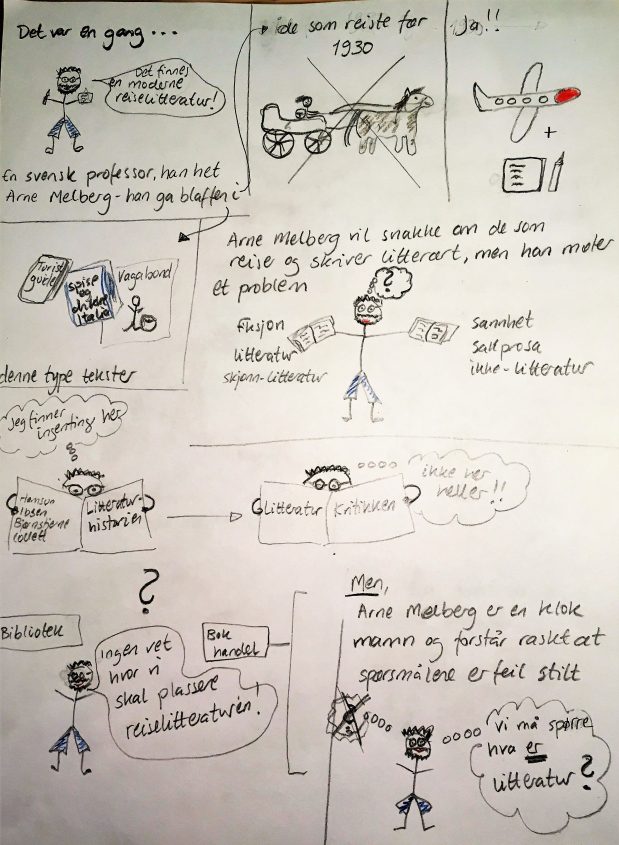 Det var en gang ...
Det finnes
en moderne
reiselitteratur!
En svensk professor, han het
Arne Melberg - han ga blaffen i
de som reiste før
1930
Ja!!
Turist
guide
spise
og
drikke
Italia
Vagabond
denne type tekster
Arne Melberg vil snakke om de som
reise og skriver litterært, men han møter
et problem
?
fiksjon
litteratur
skjønn-litteratur
sannhet
sakprosa
ikke-litteratur
Jeg finner
ingenting her
Hamsun
Ibsen
Bjørnstjerne
Collett
Litteratur-
historien
Litteratur
Kritikken
ikke her
heller!!
?
Bibliotek
Bok
handel
Ingen vet
hvor vi
skal plassere
reiselitteraturen!
Men,
Arne Melberg er en klok
mann og forstår raskt at
spørsmålene er feil stilt
vi må spørre
hva er
litteratur?